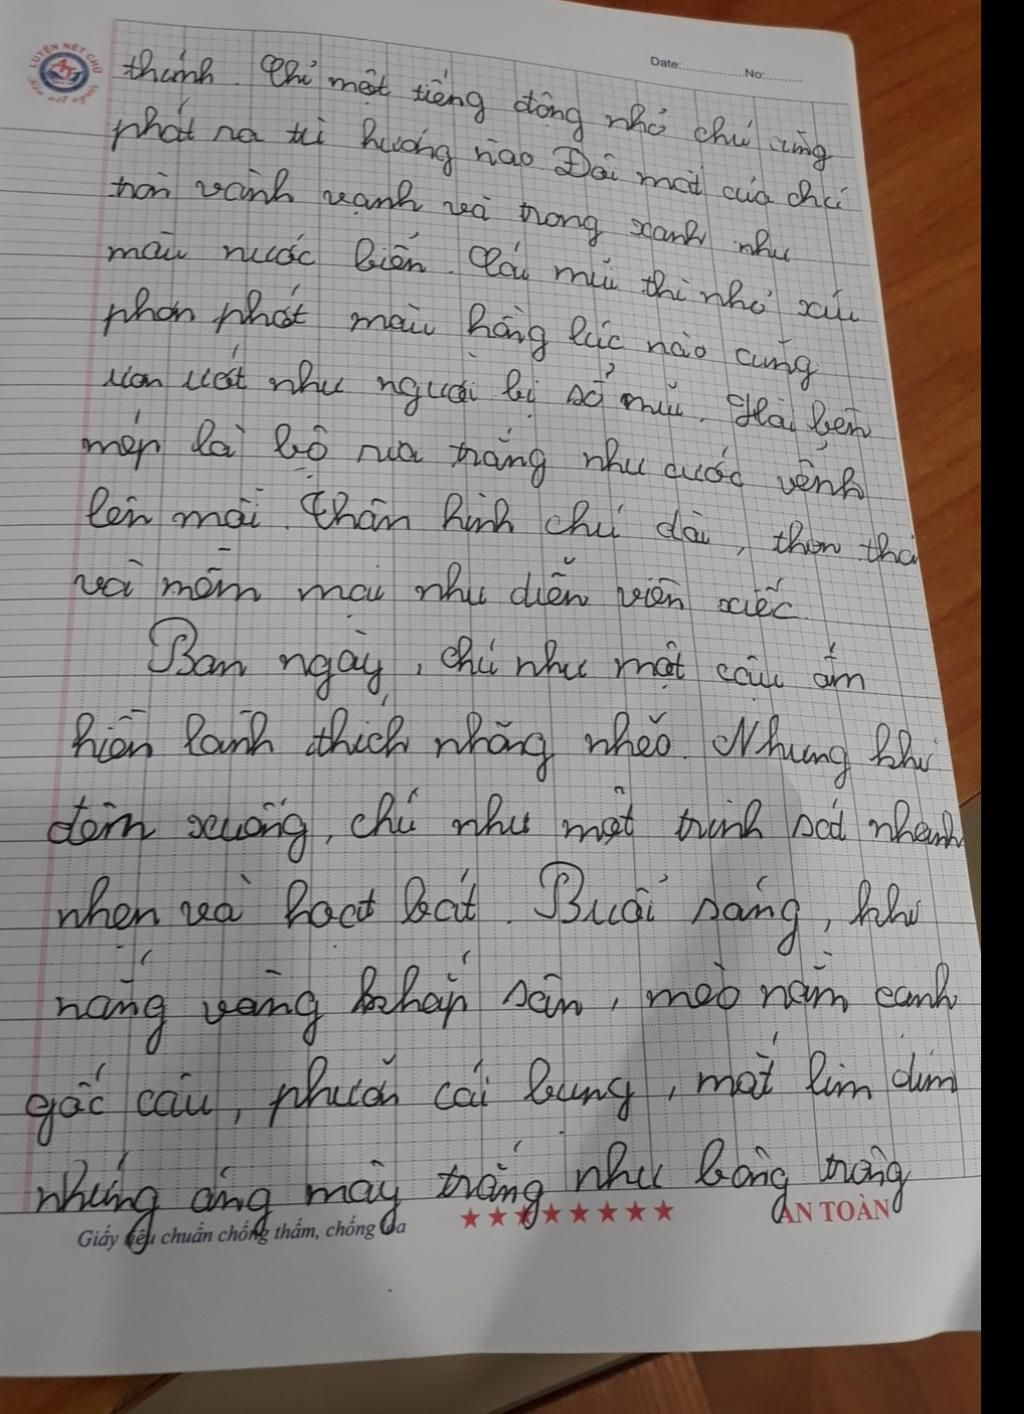 LUYỆN NÉT CHỮ
Date:..............No:..........
thính. Chỉ một tiếng động nhỏ chú cũng
phát ra từ hướng nào Đôi mắt của chú
tròn vành vạnh và trong xanh như
màu nước biển. Cái mũi thì nhỏ xíu
phơn phớt màu hồng lúc nào cũng
ươn ướt như người bị sổ mũi. Hai bên
mép là bộ ria trắng như cước vểnh
lên mãi. Thân hình chú dài, thon thả
và mềm mại như diễn viên xiếc.
Ban ngày, chú như một cậu ấm
hiền lành thích nhõng nhẽo. Nhưng khi
đêm xuống, chú như một trinh sát nhanh
nhẹn và hoạt bát. Buổi sáng, khi
nắng vàng khắp sân, mèo nằm cạnh
gốc cau, phưỡn cái bụng, mắt lim dim
những áng mây trắng như bông trong
Giấy tiêu chuẩn chống thấm, chống lóa ★★★★★★★★ AN TOÀN